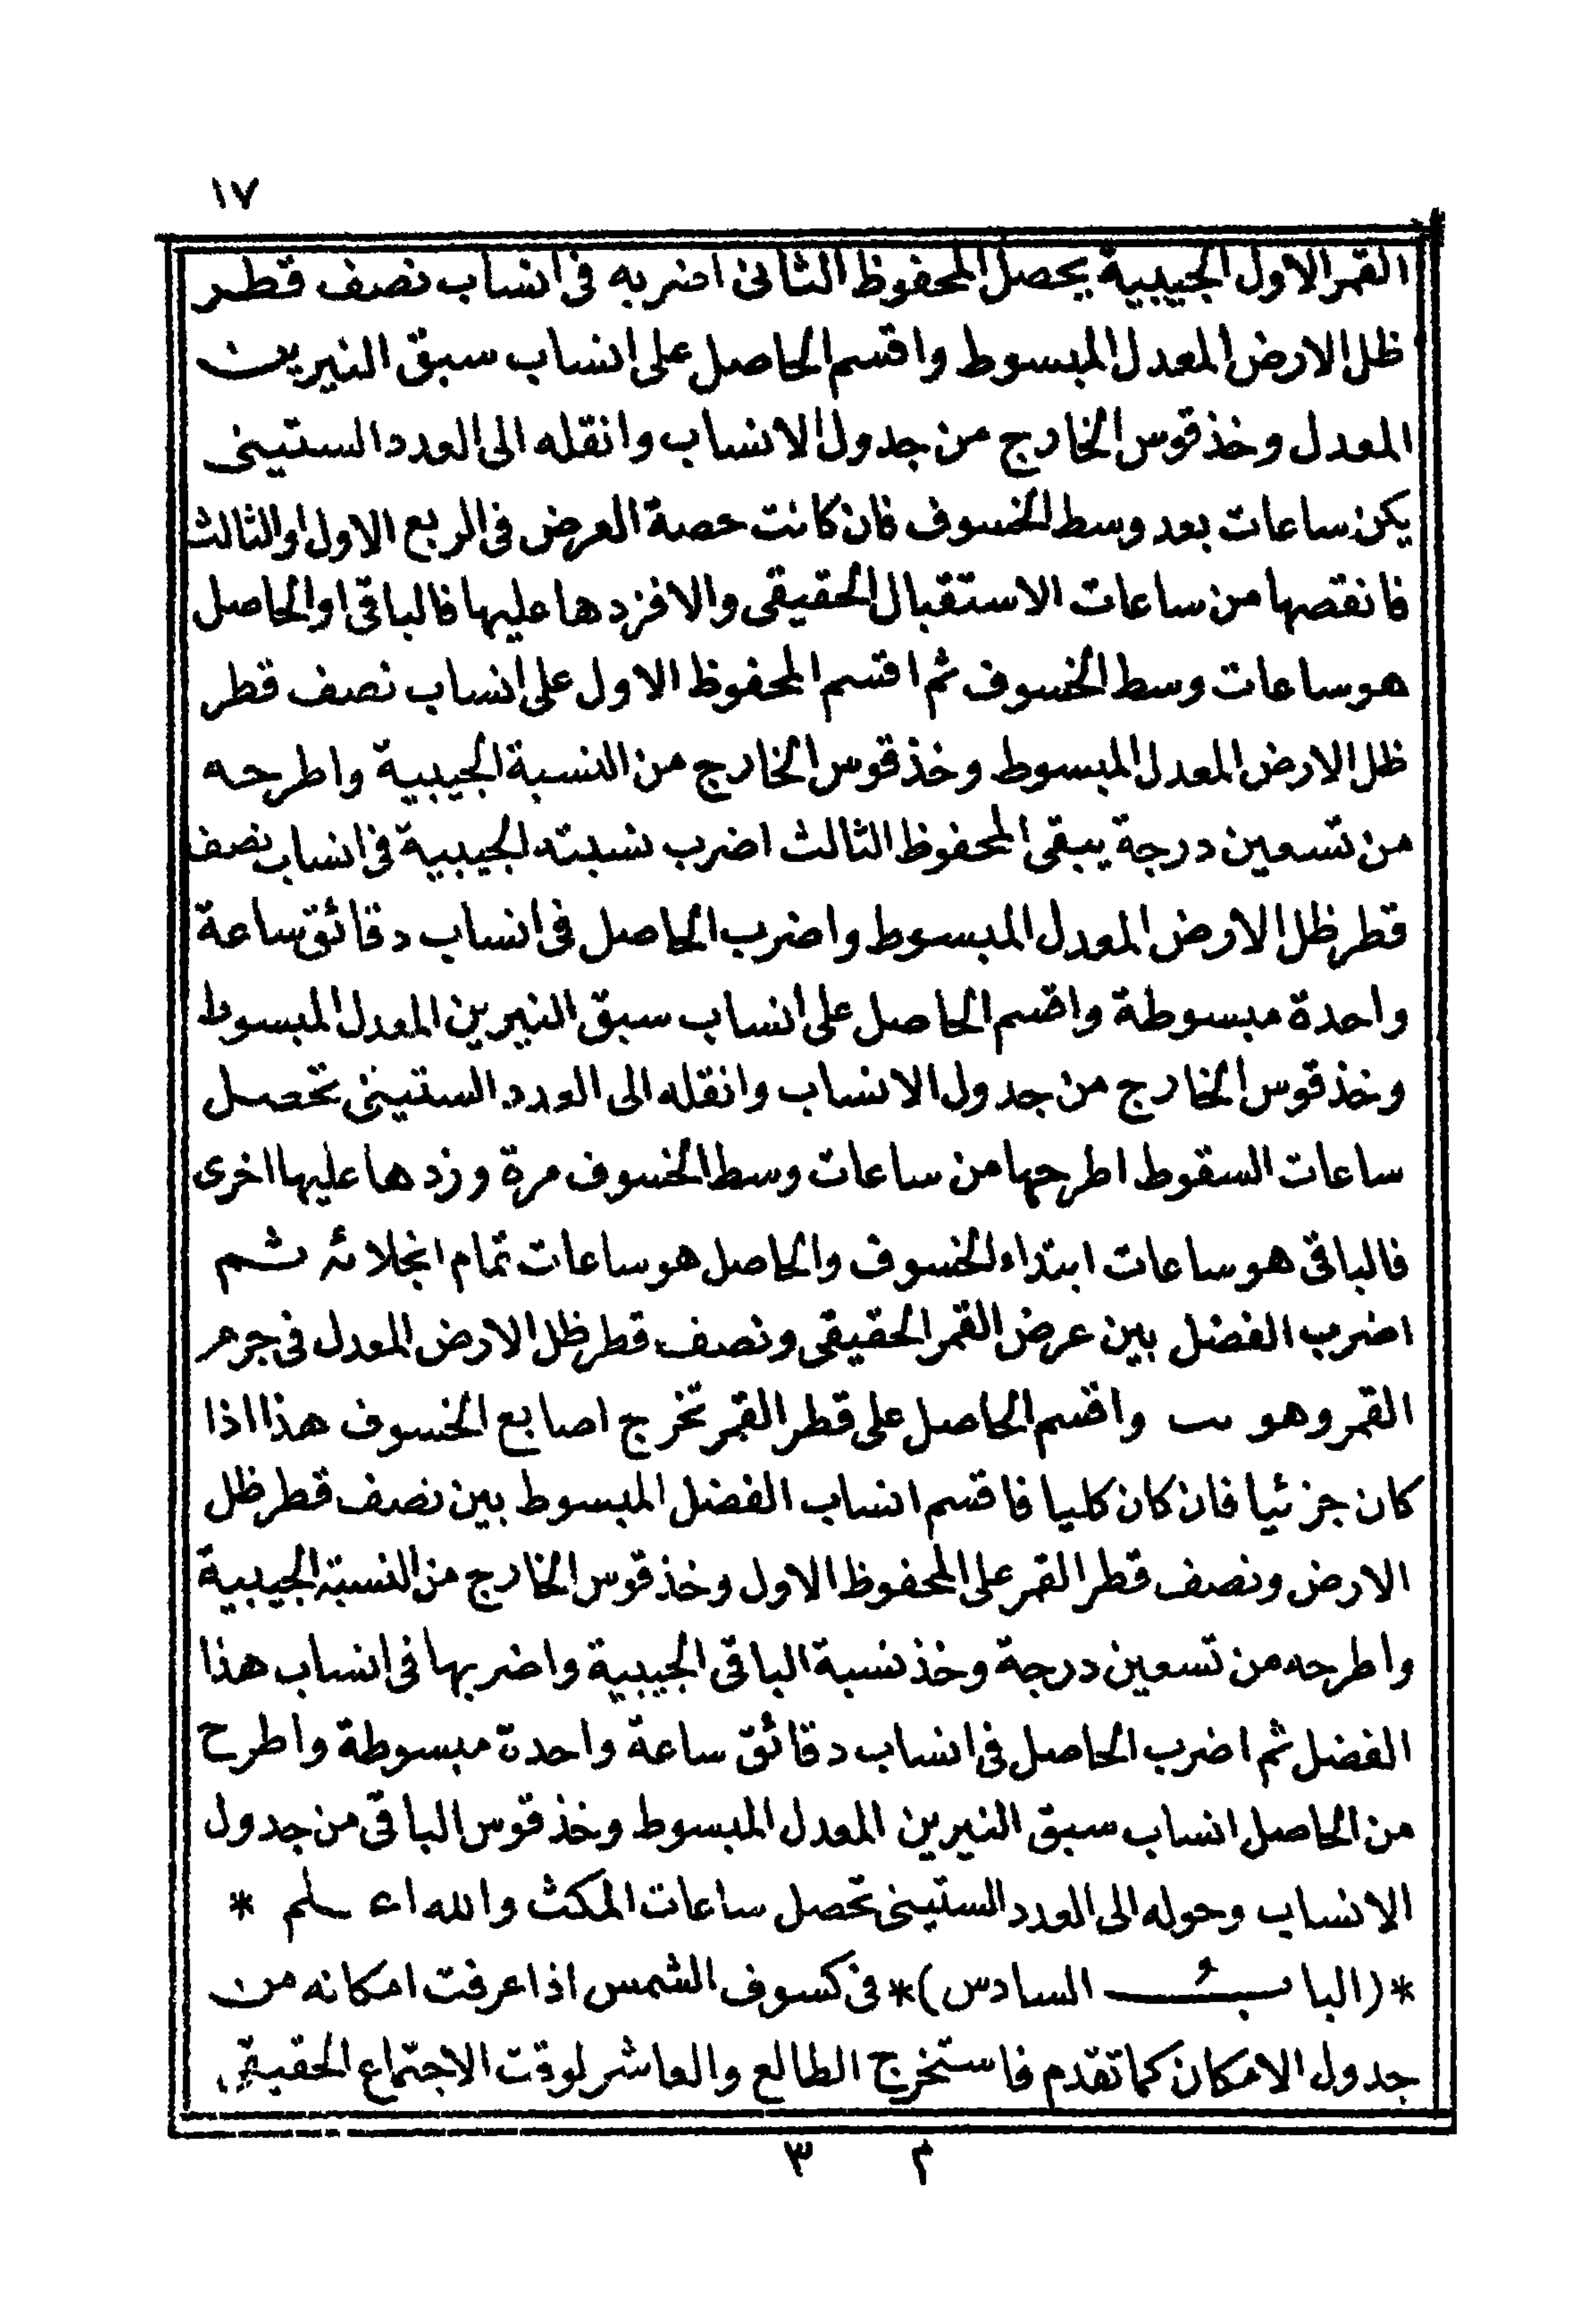 ١٧
القمر الاول الجيبية يحصل المحفوظ الثانى اضربه فى انساب نصف قطر
ظل الارض المعدل المبسوط واقسم الحاصل على انساب سبق النيرين
المعدل وخذ قوس الخارج من جدول الانساب وانقله الى العدد الستينى
يكن ساعات بعد وسط الخسوف فان كانت حصة العرض فى الربع الاول او الثالث
فانقصها من ساعات الاستقبال الحقيقى والا فزدها عليها فالباقى او الحاصل
هو ساعات وسط الخسوف ثم اقسم المحفوظ الاول على انساب نصف قطر
ظل الارض المعدل المبسوط وخذ قوس الخارج من النسبة الجيبية واطرحه
من تسعين درجة يبقى المحفوظ الثالث اضرب نسبته الجيبية فى انساب نصف
قطر ظل الارض المعدل المبسوط واضرب الحاصل فى انساب دقائق ساعة
واحدة مبسوطة واقسم الحاصل على انساب سبق النيرين المعدل المبسوط
وخذ قوس الخارج من جدول الانساب وانقله الى العدد الستينى تحصل
ساعات السقوط اطرحها من ساعات وسط الخسوف مرة وزدها عليها اخرى
فالباقى هو ساعات ابتداء الخسوف والحاصل هو ساعات تمام انجلائه ثم
اضرب الفضل بين عرض القمر الحقيقى ونصف قطر ظل الارض المعدل فى جرم
القمر وهو واقسم الحاصل على قطر القمر تخرج اصابع الخسوف هذا اذا
كان جزئيا فان كان كليا فاقسم انساب الفضل المبسوط بين نصف قطر ظل
الارض ونصف قطر القمر على المحفوظ الاول وخذ قوس الخارج من النسبة الجيبية
واطرحه من تسعين درجة وخذ نسبة الباقى الجيبية واضربها فى انساب هذا
الفضل ثم اضرب الحاصل فى انساب دقائق ساعة واحدة مبسوطة واطرح
من الحاصل انساب سبق النيرين المعدل المبسوط وخذ قوس الباقى من جدول
الانساب وحوله الى العدد الستينى تحصل ساعات المكث والله اعلم *
*(الباب السادس)* فى كسوف الشمس اذا عرفت امكانه من
جدول الامكان كما تقدم فاستخرج الطالع والعاشر لوقت الاجتماع الحقيقى
م ٣